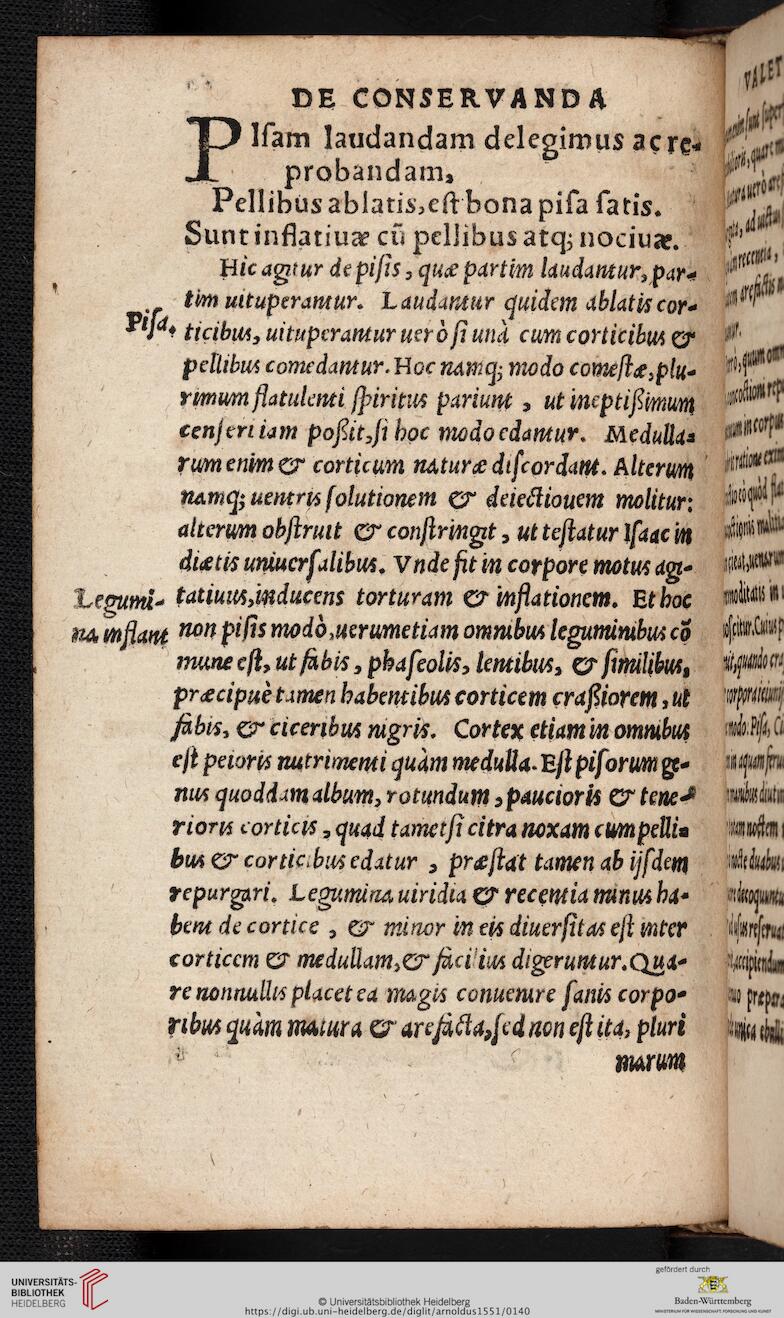 DE CONSERVANDA
PIſam laudandam delegimus ac re-
probandam,
Pellibus ablatis, eſt bona piſa ſatis.
Sunt inflatiuæ cũ pellibus atq; nociuæ.
Hic agitur de piſis, quæ partim laudantur, par-
tim uituperantur. Laudantur quidem ablatis cor-
Piſa.
ticibus, uituperantur uerò ſi unà cum corticibus &
pellibus comedantur. Hoc namq; modo comeſtæ, plu-
rimum flatulenti ſpiritus pariunt, ut ineptißimum
cenſeri iam poßit, ſi hoc modo edantur. Medulla-
rum enim & corticum naturæ diſcordant. Alterum
namq; uentris ſolutionem & deiectiouem molitur:
alterum obſtruit & conſtringit, ut teſtatur Iſaac in
diætis uniuerſalibus. Vnde fit in corpore motus agi-
Legumi-
na inflant
tatiuus, inducens torturam & inflationem. Et hoc
non piſis modò, uerumetiam omnibus leguminibus cõ
mune eſt, ut fabis, phaſeolis, lentibus, & ſimilibus,
præcipuè tamen habentibus corticem craßiorem, ut
fabis, & ciceribus nigris. Cortex etiam in omnibus
eſt peioris nutrimenti quàm medulla. Eſt piſorum ge-
nus quoddam album, rotundum, paucioris & tene-
rioris corticis, quad tametſi citra noxam cum pelli-
bus & corticibus edatur, præſtat tamen ab ijſdem
repurgari. Legumina uiridia & recentia minus ha-
bent de cortice, & minor in eis diuerſitas eſt inter
corticem & medullam, & facilius digeruntur. Qua-
re nonnullis placet ea magis conuenire ſanis corpo-
ribus quàm matura & arefacta, ſed non eſt ita, pluri
marum
VALET
UNIVERSITÄTS-
BIBLIOTHEK
HEIDELBERG
© Universitätsbibliothek Heidelberg
https://digi.ub.uni-heidelberg.de/diglit/arnoldus1551/0140
gefördert durch
Baden-Württemberg
MINISTERIUM FÜR WISSENSCHAFT, FORSCHUNG UND KUNST